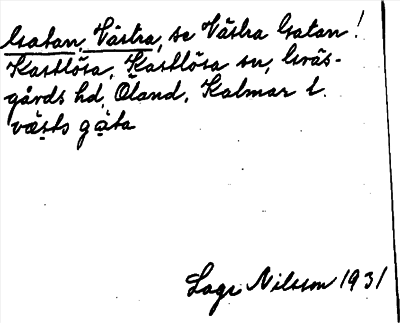 Gatan, Västra, se Västra Gatan!
Kastlösa, Kastlösa sn, Gräs-
gårds hd, Öland, Kalmar l.
västs gata
Lage Nilsson 1931